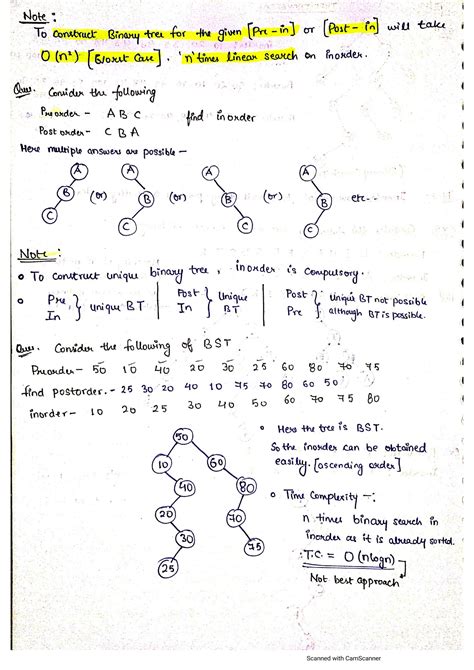 Note :
To construct Binary tree for the given [Pre-in] or [Post-in] will take
O(n²) [Worst Case], 'n' times linear search on inorder.
Ques. Consider the following
Preorder - A B C find inorder
Postorder - C B A
Here multiple answers are possible -
A A A A
B (or) B (or) B (or) B etc--
C C C C
Note :
To construct unique binary tree, inorder is compulsory.
Pre, In } unique BT | Post In } Unique BT | Post Pre } unique BT not possible although BT is possible.
Ques. Consider the following of BST.
Preorder - 50 10 40 20 30 25 60 80 70 75
find postorder. - 25 30 20 40 10 75 70 80 60 50
inorder - 10 20 25 30 40 50 60 70 75 80
50
10 60
40 80
20 70
30 75
25
Here the tree is BST.
So the inorder can be obtained
easily. [ascending order]
Time Complexity -:
n times binary search in
inorder as it is already sorted.
∴ T.C. = O(nlogn)
Not best approach
Scanned with CamScanner